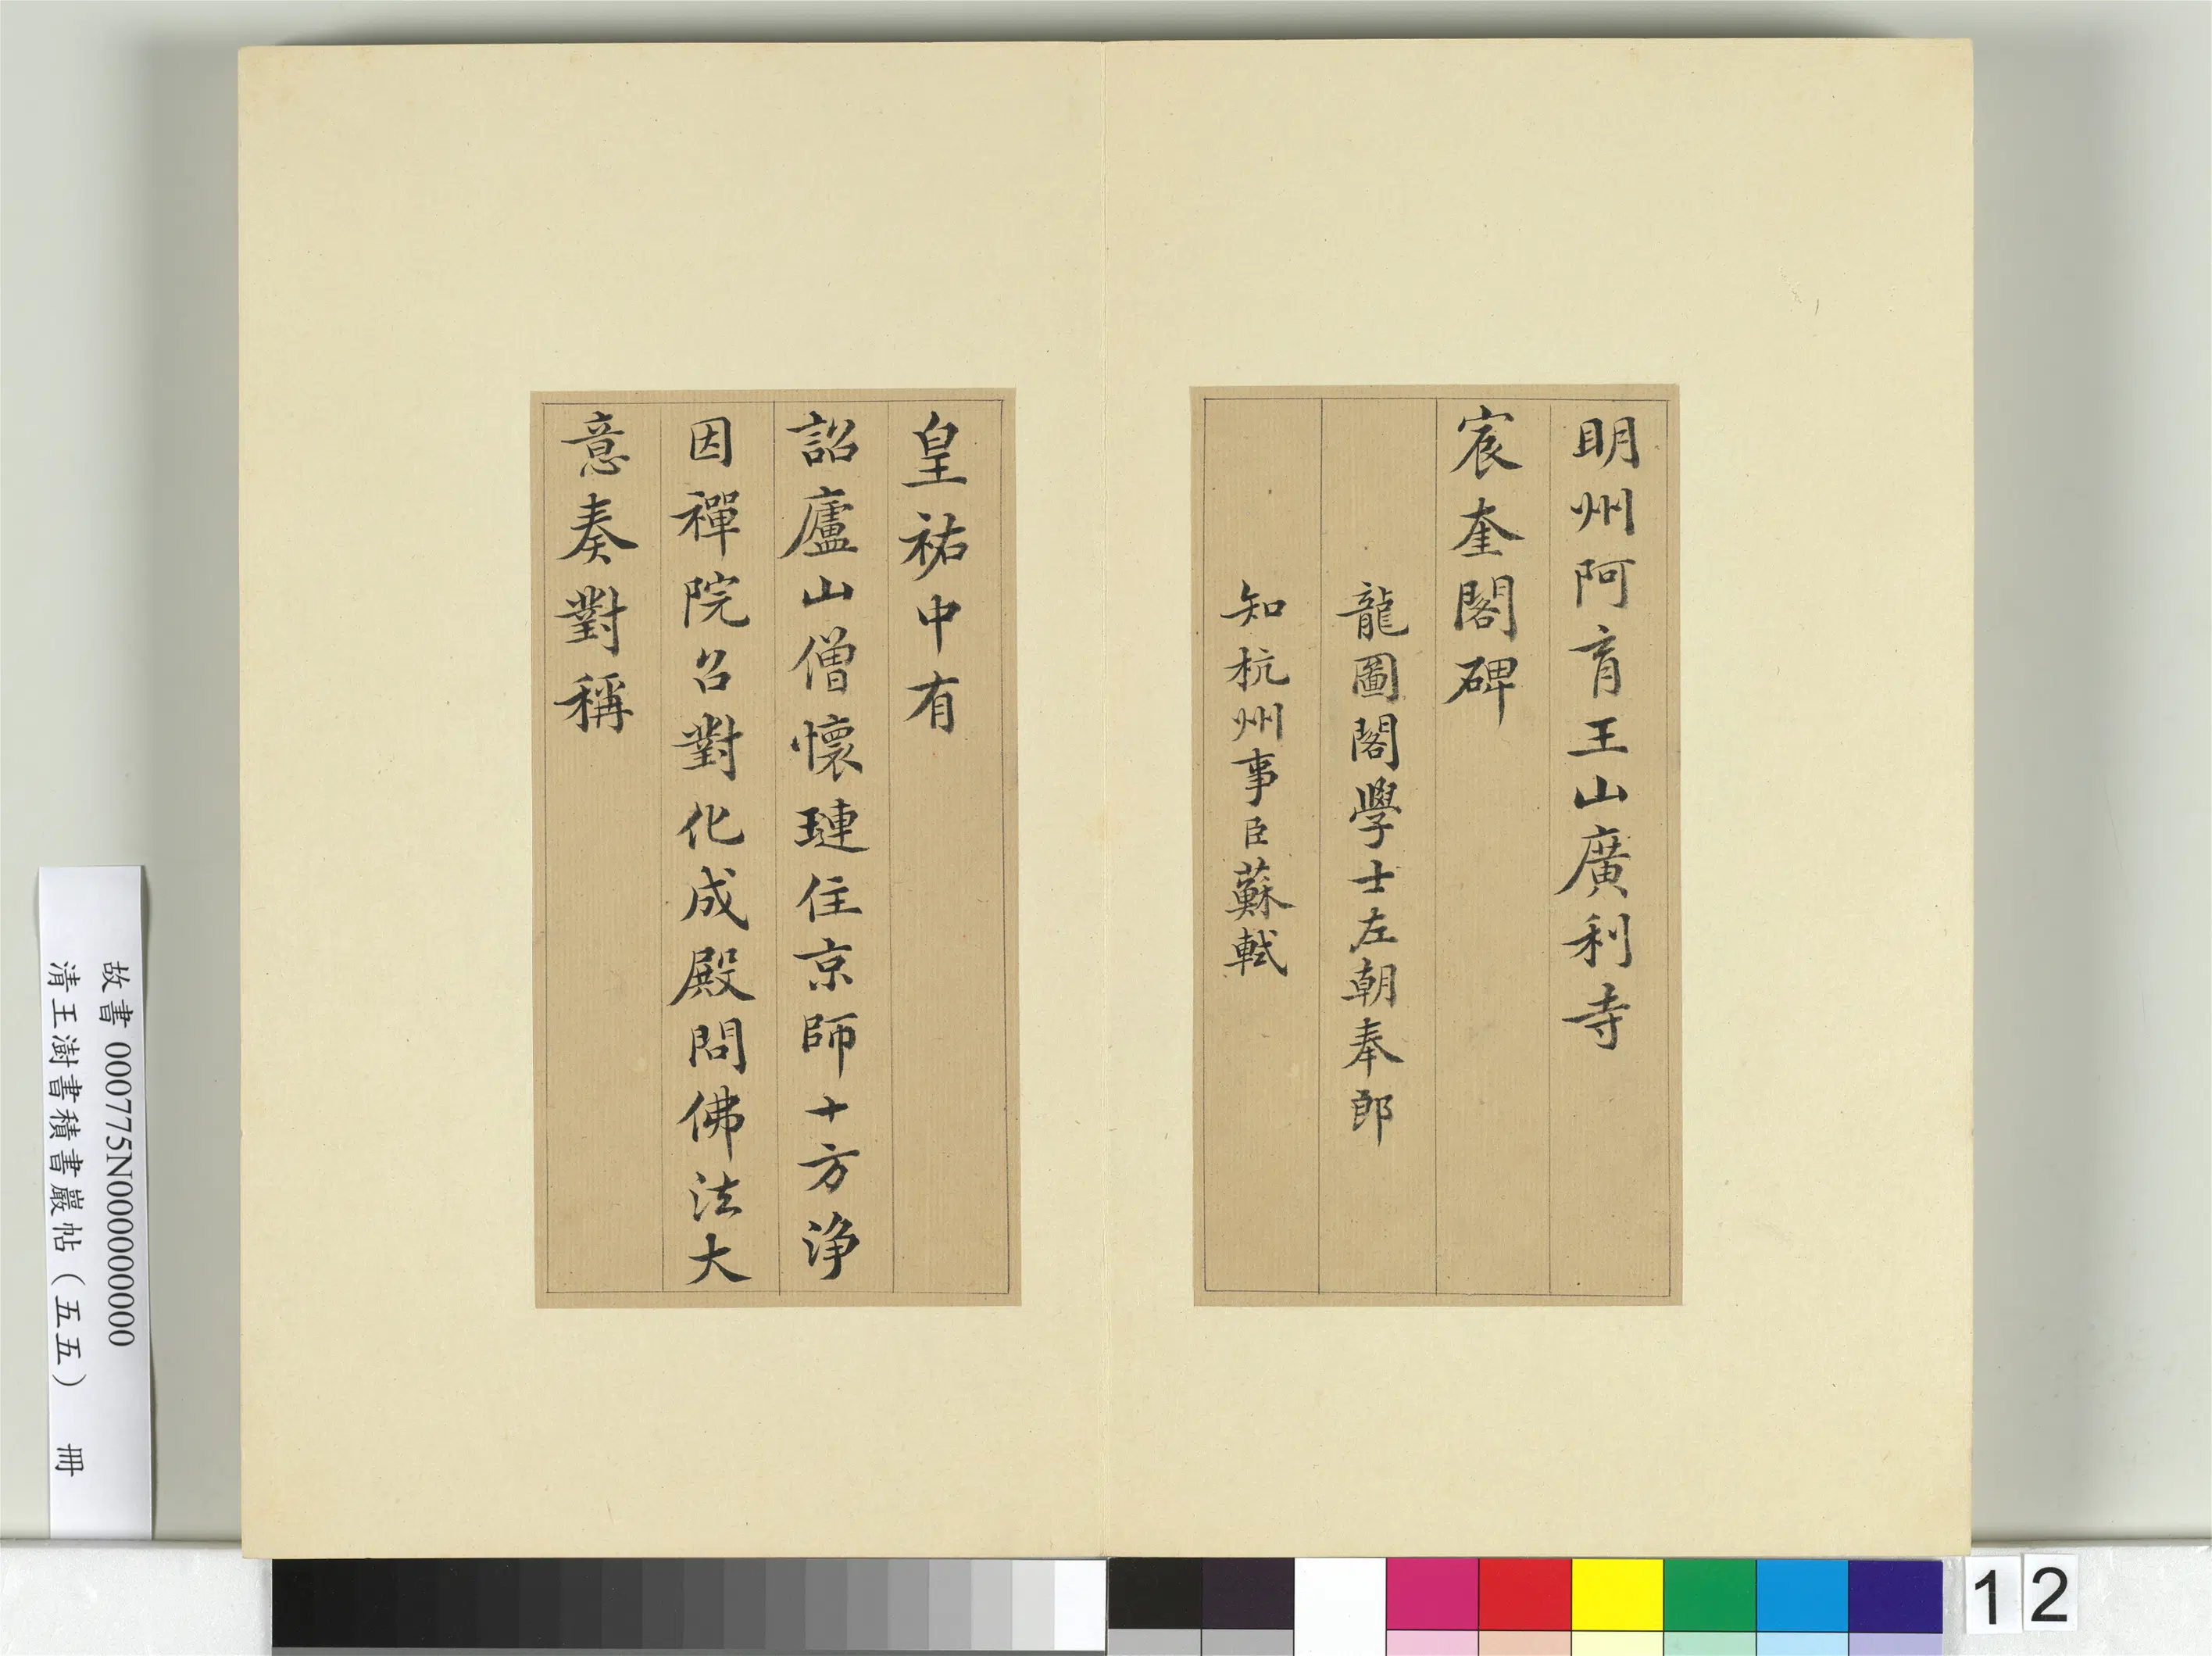 明州阿育王山廣利寺
宸奎閣碑
龍圖閣學士左朝奉郎
知杭州事臣蘇軾
皇祐中有
詔廬山僧懷璉住京師十方浄
因禪院召對化成殿問佛法大
意奏對稱
故書 000775N000000000
清王澍書積書巖帖（五五） 冊
12